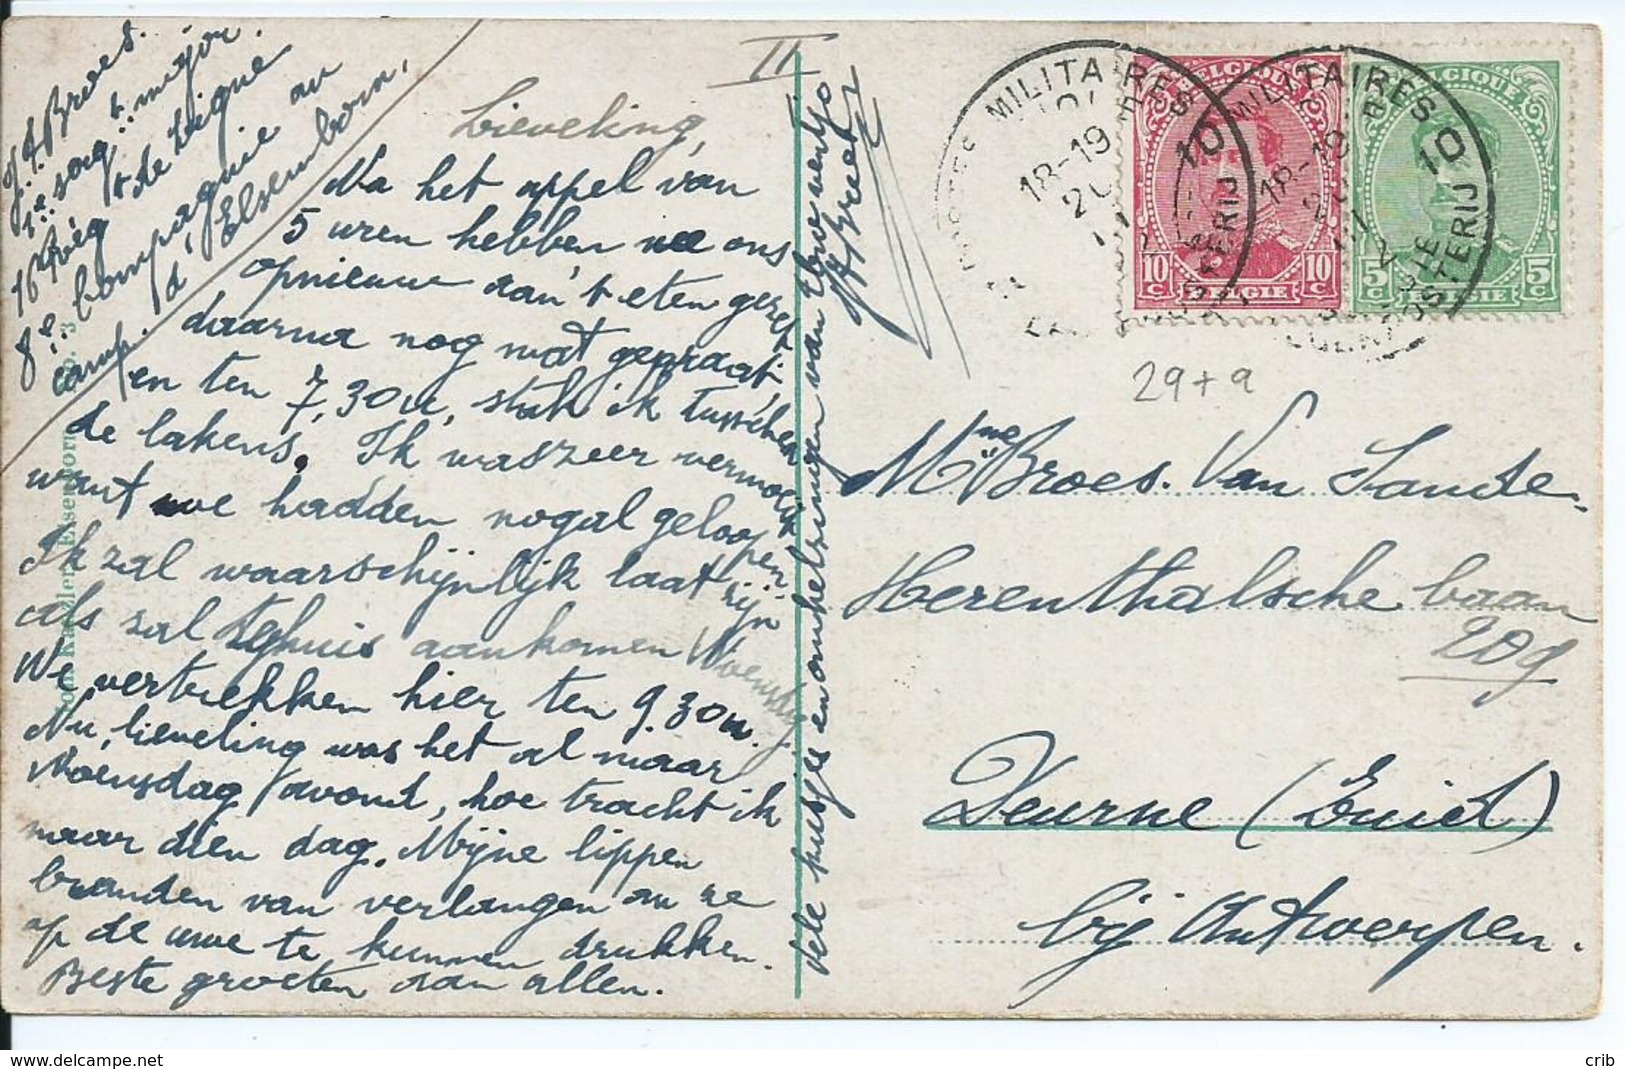 J. A. Broes.
1e serg.t major.
16e Rég.t de Ligne
8e Compagnie au
camp d'Elsenborn.
II
Lieveling,
Na het appel van
5 uren hebben we ons
opnieuw aan 't eten gezet
daarna nog wat gepraat,
en ten 7,30 u, stak ik tusschen
de lakens. Ik was zeer vermoeid
want we hadden nogal geloopen.
Ik zal waarschijnlijk laat zijn
als zal teghuis aankomen Woensdg.
We vertrekken hier ten 9.30 u.
Nu, lieveling was het al maar
Woensdag avond, hoe tracht ik
naar dien dag. Mijne lippen
branden van verlangen om ze
op de uwe te kunnen drukken.
Beste groeten aan allen.
Vele kusjes en omhelzingen van Uwe ventjo
A Broes
MILITAIRES 10
18-19
MILITAIRES 10
18-19
POSTERIJ
BELGIQUE
10 c 10 c
BELGIE
BELGIQUE
5 c 5 c
BELGIE
29 + 9
Mme Broes. Van Sande.
Herenthalsche baan
209
Deurne (Zuid)
bij Antwerpen.
crib